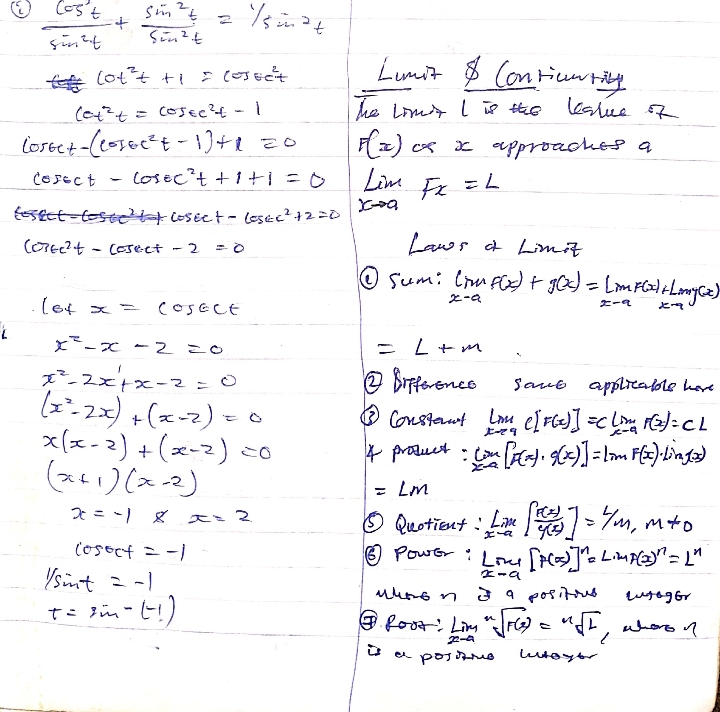 ① cos²t/sin²t + sin²t/sin²t = 1/sin²t
cot²t + 1 = cosec²t
cot²t = cosec²t - 1
cosect - (cosec²t - 1) + 1 = 0
cosect - cosec²t + 1 + 1 = 0
cosect - cosec² + 2 = 0
cosec²t - cosect - 2 = 0
let x = cosect
x² - x - 2 = 0
x² - 2x + x - 2 = 0
(x² - 2x) + (x - 2) = 0
x(x - 2) + (x - 2) = 0
(x + 1)(x - 2)
x = -1 & x = 2
cosect = -1
1/sint = -1
t = sin⁻(-1)
Limit & Continuity
The limit L is the value of
F(x) as x approaches a
Lim x→a Fx = L
Laws of Limit
① Sum: lim x-a F(x) + g(x) = Lim x-a F(x) + Lim x-a g(x)
= L + m
② Difference same applicable here
③ Constant Lim x→a c[F(x)] = c lim x-a F(x) = cL
4 product: Lim x-a [F(x) · g(x)] = lim F(x) · Lim g(x)
= Lm
⑤ Quotient: Lim x-a [F(x)/g(x)] = L/m, m ≠ 0
⑥ Power: Lim x-a [F(x)]ⁿ = Lim F(x)ⁿ = Lⁿ
where n is a positive integer
⑦ Root: Lim x-a ⁿ√F(x) = ⁿ√L, where n
is a positive integer